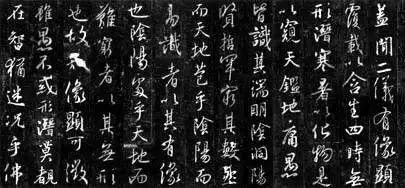 盖聞二儀有像顯
覆載以含生四時無
形潛寒暑以化物是
以窺天鑑地庸愚
皆識其端明陰洞陽
賢哲罕窮其數然
而天地苞乎陰陽而
易識者以其有像
也陰陽處乎天地而
難窮者以其無形
也故知像顯可徵
雖愚不惑形潛莫覩
在智猶迷況乎佛